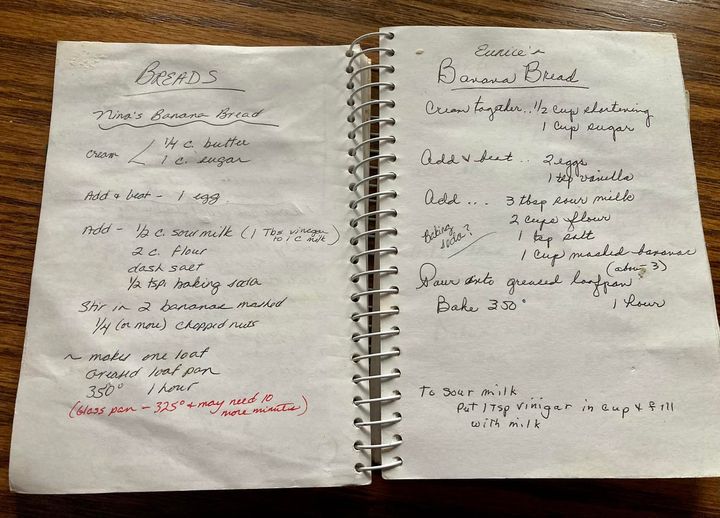 BREADS
Nina's Banana Bread
cream < 1/4 c. butter
1 c. sugar
Add & beat - 1 egg
Add - 1/2 c. sour milk (1 Tbs vinegar to 1 c milk)
2 c. flour
dash salt
1/2 tsp. baking soda
Stir in 2 bananas mashed
1/4 (or more) chopped nuts
~ makes one loaf
Greased loaf pan
350° 1 hour
(Glass pan - 325° & may need 10
more minutes)
Eunice's
Banana Bread
Cream together.. 1/2 cup shortening
1 cup sugar
Add & beat .. 2 eggs
1 tsp vanilla
Add ... 3 tbsp sour milk
2 cups flour
Baking soda?
1 tsp salt
1 cup mashed bananas
(about 3)
Pour into greased loaf pan
Bake 350° 1 hour
To sour milk
Put 1 Tsp vinigar in cup & fill
with milk